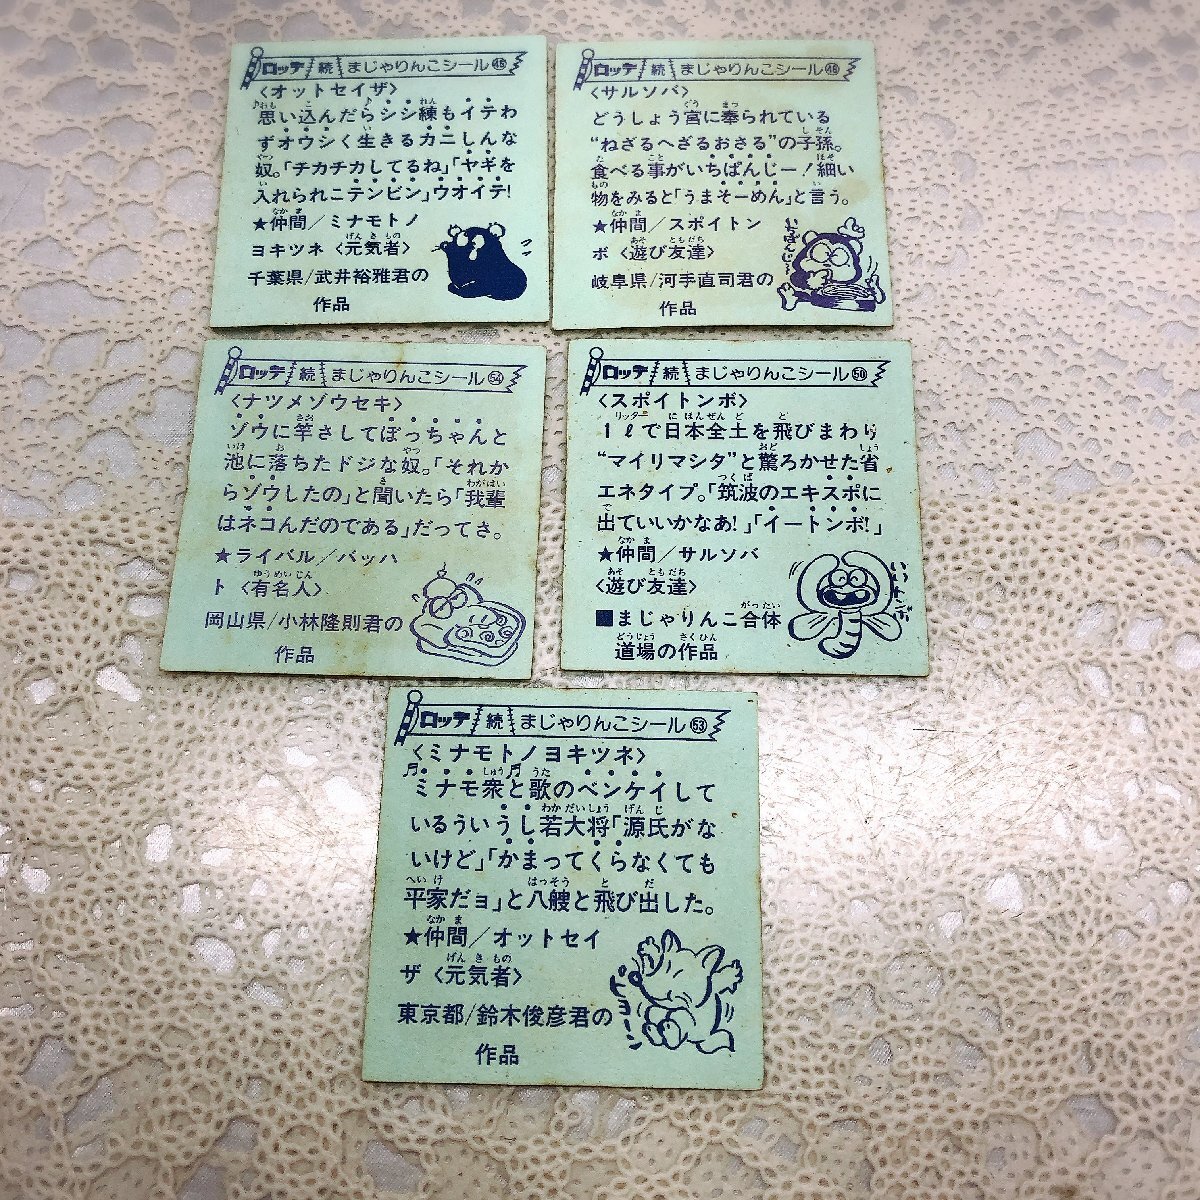 ロッテ 続 まじゃりんこシール㊺
〈オットセイザ〉
思い込んだらシシ練もイテわ
ずオウシく生きるカニしんな
奴。「チカチカしてるね」「ヤギを
入れられニテンビン」ウオイテ!
★仲間/ミナモトノ
ヨキツネ〈元気者〉
千葉県/武井裕雅君の
作品
ロッテ 続 まじゃりんこシール㊻
〈サルソバ〉
どうしょう宮に奉られている
“ねざるへざるおさる”の子孫。
食べる事がいちばんじー!細い
物をみると「うまそーめん」と言う。
★仲間/スポイトン
ボ〈遊び友達〉
岐阜県/河手直司君の
作品
いちばんじ〜
ロッテ 続 まじゃりんこシール54
〈ナツメゾウセキ〉
ゾウに竿さしてぼっちゃんと
池に落ちたドジな奴。「それか
らゾウしたの」と聞いたら「我輩
はネコんだのである」だってさ。
★ライバル/バッハ
ト〈有名人〉
岡山県/小林隆則君の
作品
ロッテ 続 まじゃりんこシール㊿
〈スポイトンボ〉
1ℓで日本全土を飛びまわり
“マイリマシタ”と驚ろかせた省
エネタイプ。「筑波のエキスポに
出ていいかなあ!」「イートンボ!」
★仲間/サルソバ
〈遊び友達〉
■まじゃりんこ合体
道場の作品
いートンボ
ロッテ 続 まじゃりんこシール53
〈ミナモトノヨキツネ〉
ミナモ衆と歌のベンケイして
いるういうし若大将「源氏がな
いけど」「かまってくらなくても
平家だョ」と八艘と飛び出した。
★仲間/オットセイ
ザ〈元気者〉
東京都/鈴木俊彦君の
作品